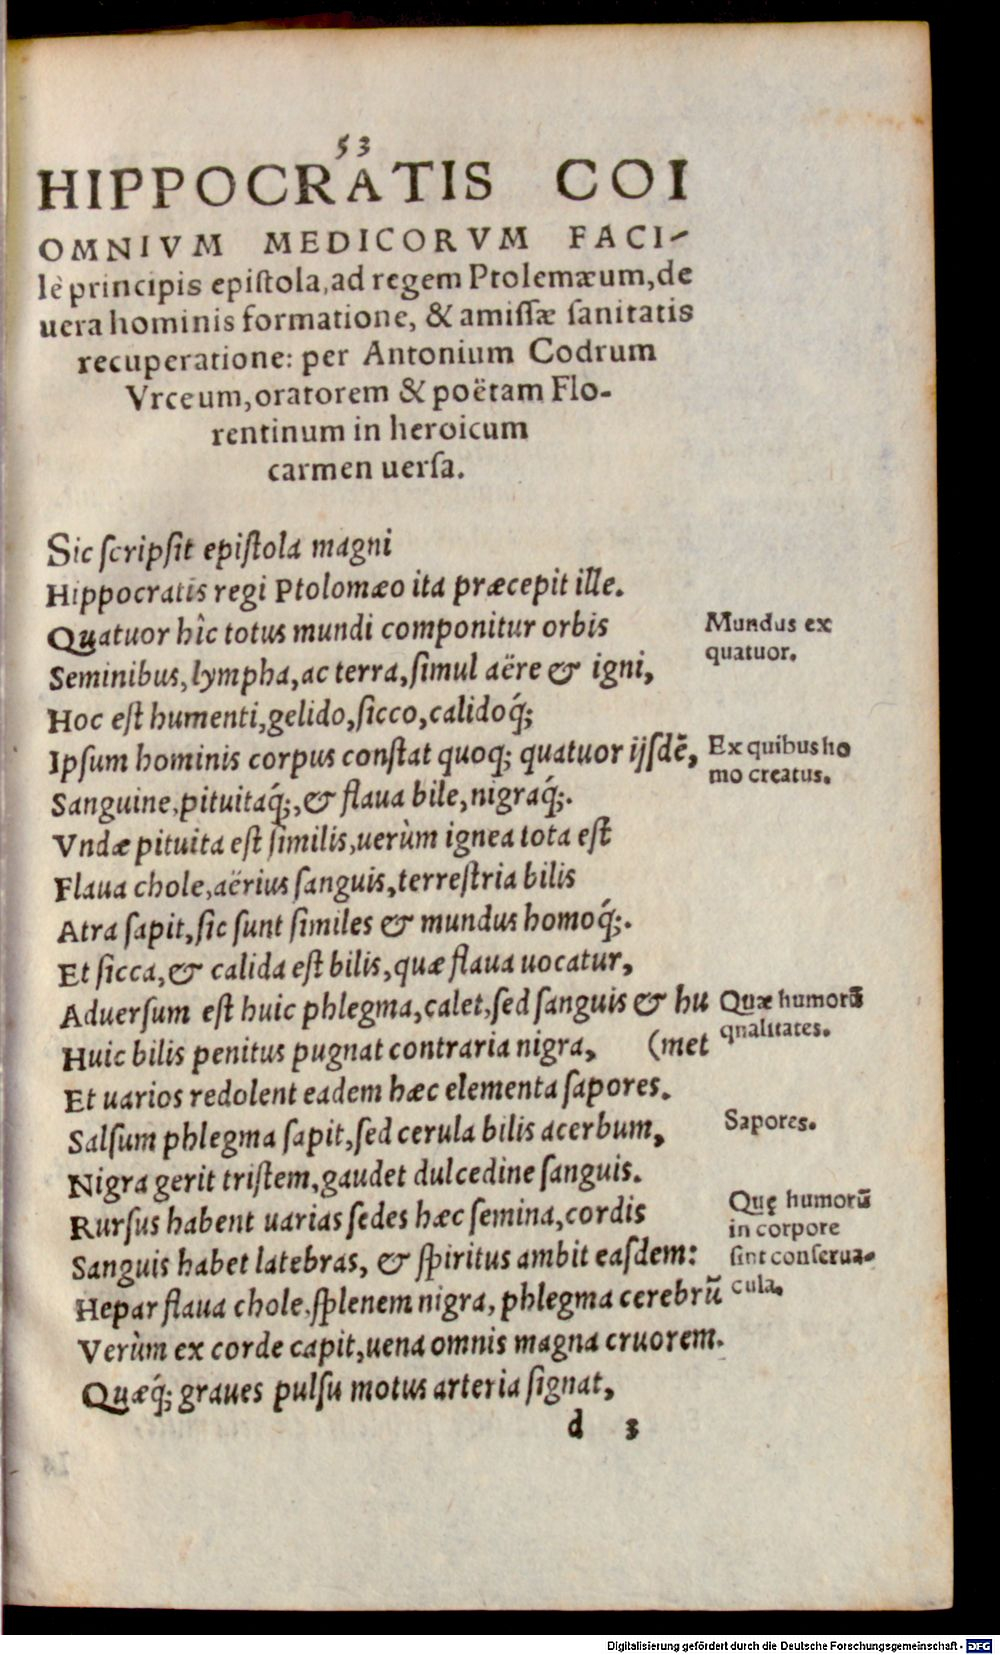 53
HIPPOCRATIS COI
OMNIVM MEDICORVM FACI-
lè principis epiſtola, ad regem Ptolemæum, de
uera hominis formatione, & amiſſæ ſanitatis
recuperatione: per Antonium Codrum
Vrceum, oratorem & poëtam Flo-
rentinum in heroicum
carmen uerſa.
Sic ſcripſit epiſtola magni
Hippocratis regi Ptolomæo ita præcepit ille.
Quatuor hîc totus mundi componitur orbis
Mundus ex
quatuor.
Seminibus, lympha, ac terra, ſimul aëre & igni,
Hoc eſt humenti, gelido, ſicco, calidoq́;
Ipſum hominis corpus conſtat quoq; quatuor ijſdē,
Ex quibus ho
mo creatus.
Sanguine, pituitaq́;, & flaua bile, nigraq́;.
Vndæ pituita eſt ſimilis, uerùm ignea tota eſt
Flaua chole, aërius ſanguis, terreſtria bilis
Atra ſapit, ſic ſunt ſimiles & mundus homoq́;.
Et ſicca, & calida eſt bilis, quæ flaua uocatur,
Aduerſum eſt huic phlegma, calet, ſed ſanguis & hu
Quæ humorū
qualitates.
Huic bilis penitus pugnat contraria nigra, (met
Et uarios redolent eadem hæc elementa ſapores.
Salſum phlegma ſapit, ſed cerula bilis acerbum,
Sapores.
Nigra gerit triſtem, gaudet dulcedine ſanguis.
Rurſus habent uarias ſedes hæc ſemina, cordis
Quę humorū
in corpore
ſint conſerua-
cula.
Sanguis habet latebras, & ſpiritus ambit eaſdem:
Hepar flaua chole, ſplenem nigra, phlegma cerebrū
Verùm ex corde capit, uena omnis magna cruorem.
Quæq́; graues pulſu motus arteria ſignat,
d 3
Digitalisierung gefördert durch die Deutsche Forschungsgemeinschaft - DFG